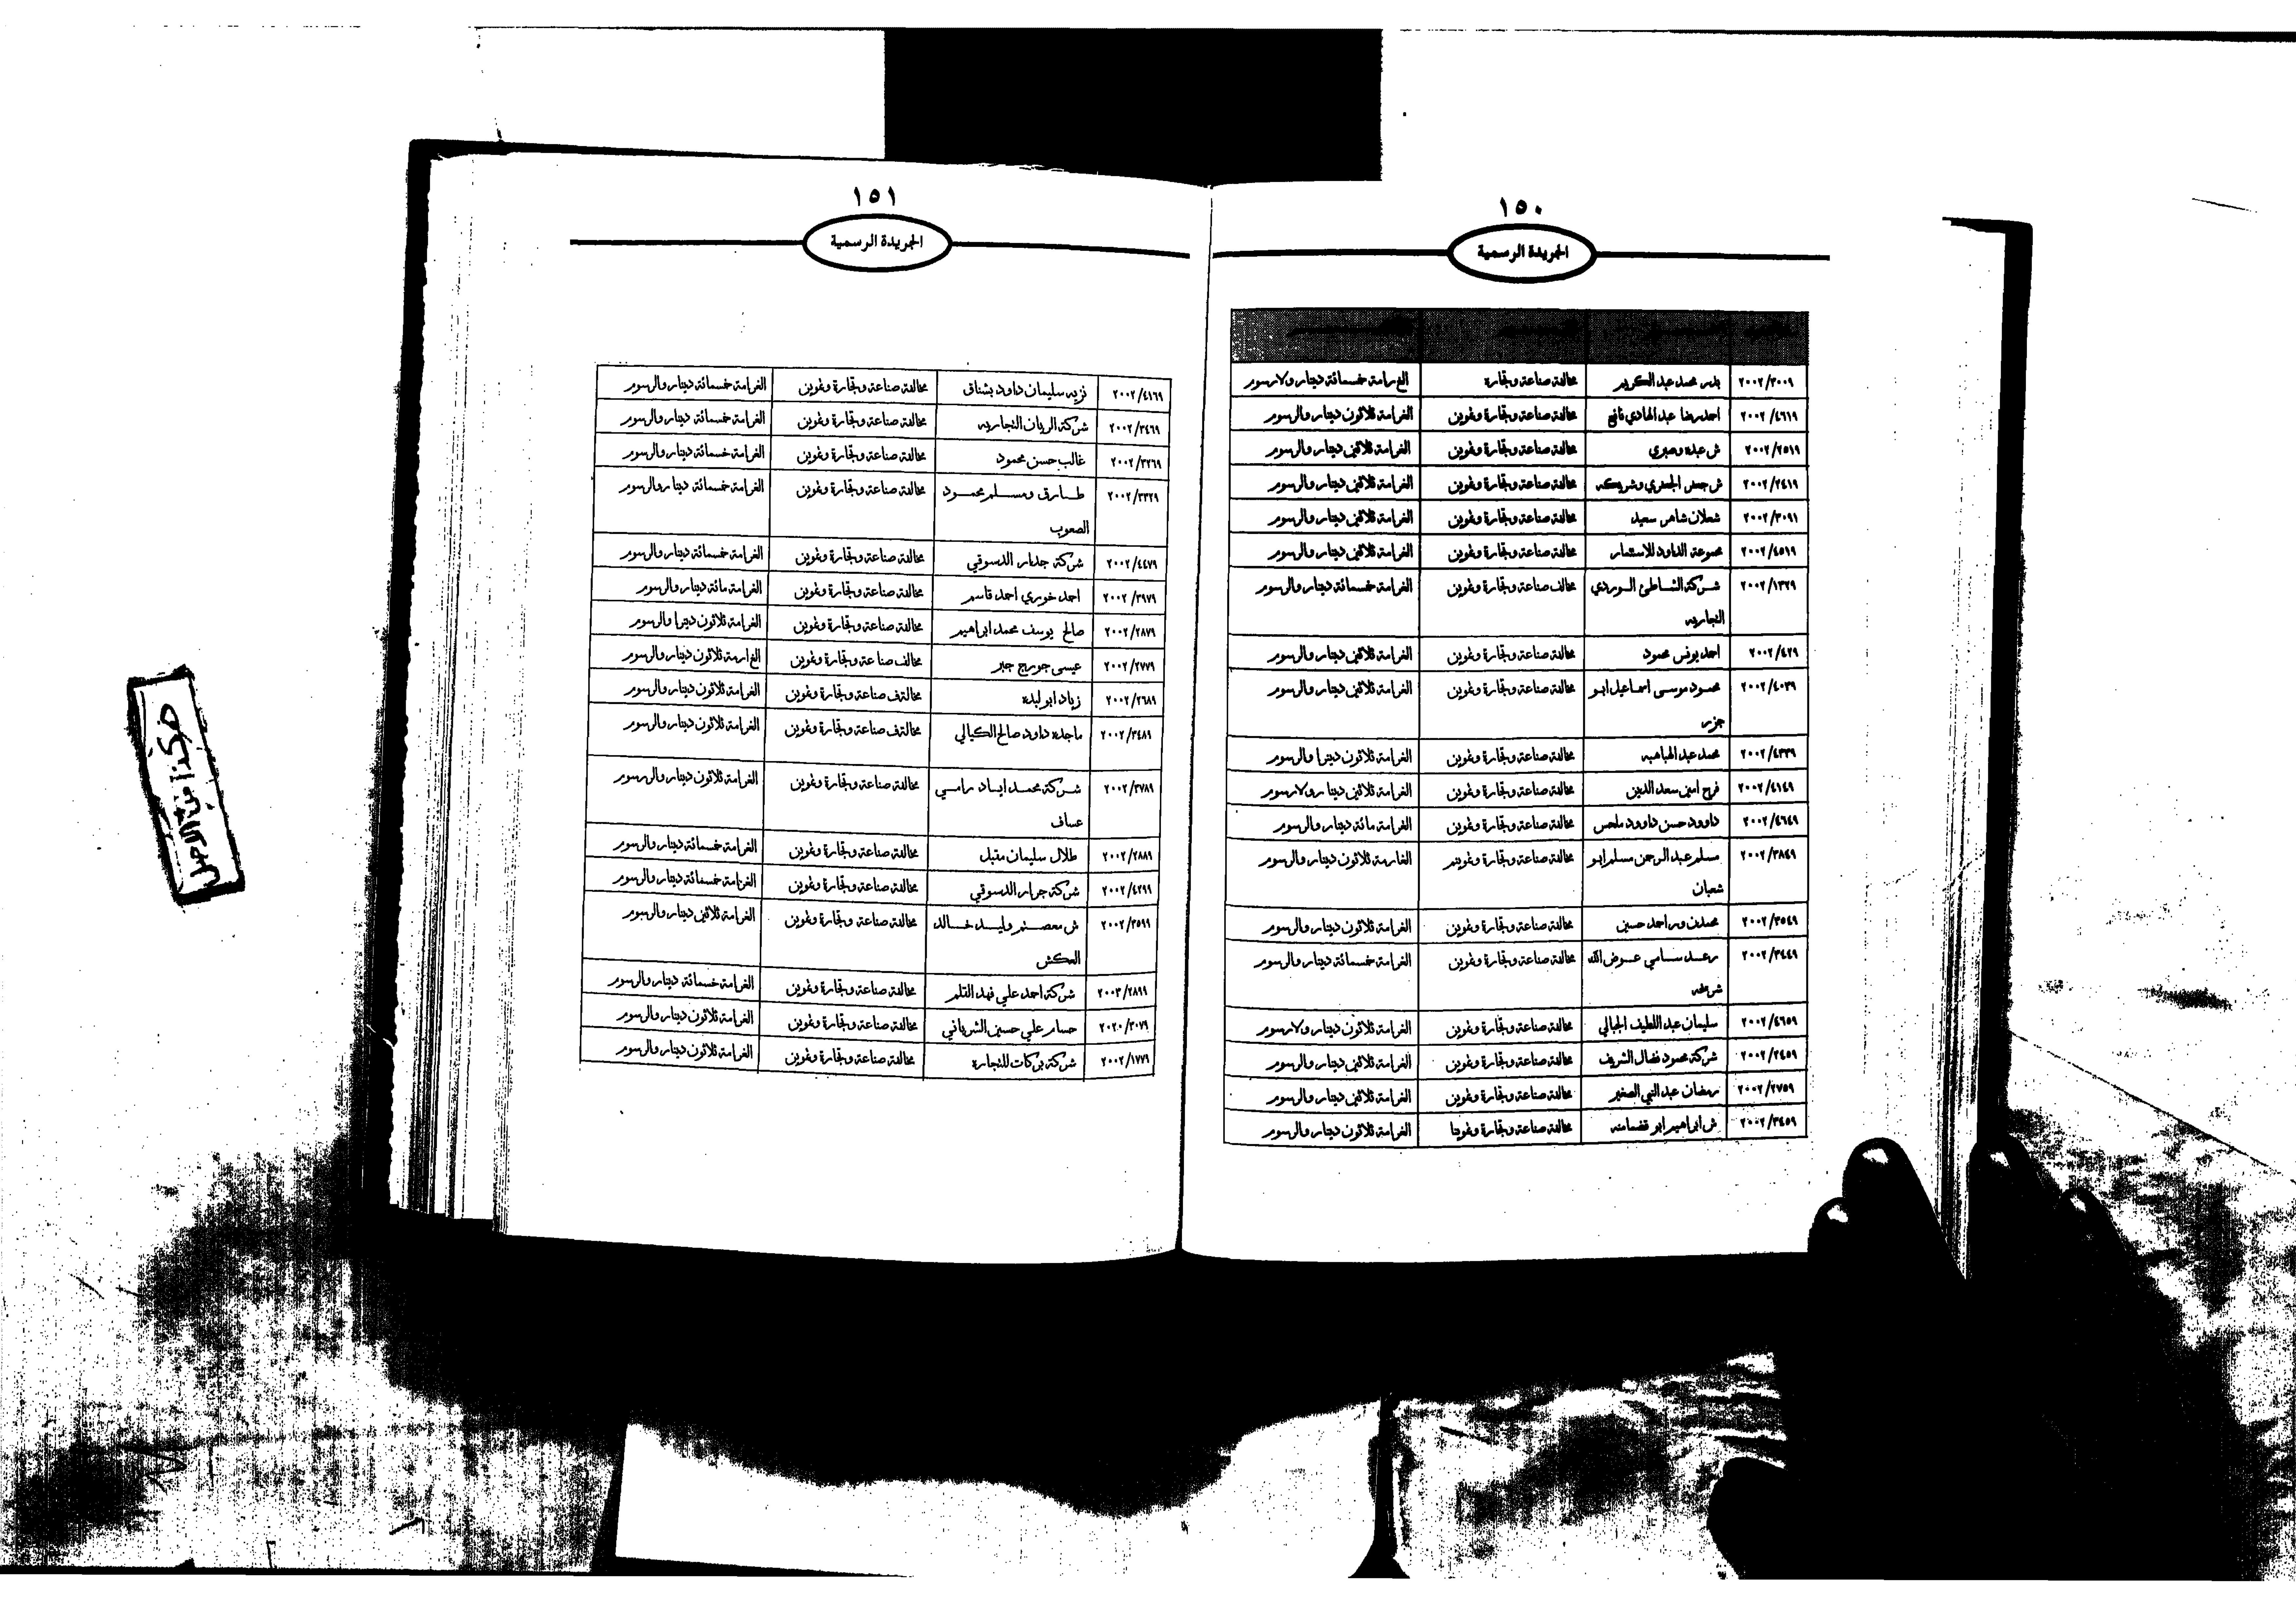 ١٥٠
الجريدة الرسمية
٢٠٠٢/٣٠٠٩ بدر محمد عبد الكريم مخالفة صناعة وتجارة الغرامة خمسمائة دينار ولارسوم
٢٠٠٢/٤٦١٩ احمد رضا عبد الهادي نافع مخالفة صناعة وتجارة وتموين الغرامة ثلاثون دينار والرسوم
٢٠٠٢/٢٥١٩ ش عبده وصبري مخالفة صناعة وتجارة وتموين الغرامة ثلاثين دينار والرسوم
٢٠٠٢/٢٤١٩ ش جعفر الجعبري وشريكه مخالفة صناعة وتجارة وتموين الغرامة ثلاثين دينار والرسوم
٢٠٠٢/٣٠٩١ شعلان شاهر سعيد مخالفة صناعة وتجارة وتموين الغرامة ثلاثين دينار والرسوم
٢٠٠٢/٤٥١٩ مجموعة الداود للاستثمار مخالفة صناعة وتجارة وتموين الغرامة ثلاثين دينار والرسوم
٢٠٠٢/١٣٢٩ شركة الشاطئ الوردي مخالف صناعة وتجارة وتموين الغرامة خمسمائة دينار والرسوم
التجاريه
٢٠٠٢/٤٢٩ احمد يونس محمود مخالفة صناعة وتجارة وتموين الغرامة ثلاثين دينار والرسوم
٢٠٠٢/٤٠٣٩ محمود موسى اسماعيل ابو مخالفة صناعة وتجارة وتموين الغرامة ثلاثين دينار والرسوم
جزر
٢٠٠٢/٤٣٣٩ محمد عبد الهباهبه مخالفة صناعة وتجارة وتموين الغرامة ثلاثون دينرا والرسوم
٢٠٠٢/٤١٤٩ فرح امين سعد الدين مخالفة صناعة وتجارة وتموين الغرامة ثلاثين دينا رولارسوم
٢٠٠٢/٤٦٤٩ داوود حسن داوود ملحس مخالفة صناعة وتجارة وتموين الغرامة مائة دينار والرسوم
٢٠٠٢/٣٨٤٩ مسلم عبد الرحمن مسلم ابو مخالفة صناعة وتجارة وتموينم الغارمة ثلاثون دينار والرسوم
شعبان
٢٠٠٢/٣٥٤٩ محمدن ور احمد حسين مخالفة صناعة وتجارة وتموين الغرامة ثلاثون دينار والرسوم
٢٠٠٢/٣٤٤٩ رعد سامي عوض الله مخالفة صناعة وتجارة وتموين الغرامة خمسمائة دينار والرسوم
٢٠٠٢/٤٦٥٩ سليمان عبد اللطيف الجبالي مخالفة صناعة وتجارة وتموين الغرامة ثلاثون دينار ولارسوم
٢٠٠٢/٢٤٥٩ شركة محمود نضال الشريف مخالفة صناعة وتجارة وتموين الغرامة ثلاثين دينار والرسوم
٢٠٠٢/٢٧٥٩ رمضان عبد النبي الصغير مخالفة صناعة وتجارة وتموين الغرامة ثلاثين دينار والرسوم
٢٠٠٢/٣٤٥٩ ش ابراهيم ابو مخالفة صناعة وتجارة الغرامة ثلاثون دينار والرسوم
١٥١
الجريدة الرسمية
٢٠٠٢/٤١٦٩ نزيه سليمان داود بشناق مخالفة صناعة وتجارة وتموين الغرامة خمسمائة دينار والرسوم
٢٠٠٢/٣٤٦٩ شركة الريان التجاريه مخالفة صناعة وتجارة وتموين الغرامة خمسمائة دينار والرسوم
٢٠٠٢/٣٢٦٩ غالب حسن محمود مخالفة صناعة وتجارة وتموين الغرامة خمسمائة دينار والرسوم
٢٠٠٢/٣٣٢٩ طارق ومسلم محمود مخالفة صناعة وتجارة وتموين الغرامة خمسمائة دينا روالرسوم
الصعوب
٢٠٠٢/٤٤٧٩ شركة جدار الدسوقي مخالفة صناعة وتجارة وتموين الغرامة خمسمائة دينار والرسوم
٢٠٠٢/٣٩٧٩ احمد خوري احمد قاسم مخالفة صناعة وتجارة وتموين الغرامة مائة دينار والرسوم
٢٠٠٢/٢٨٧٩ صالح يوسف محمد ابراهيم مخالفة صناعة وتجارة وتموين الغرامة ثلاثون دينرا والرسوم
٢٠٠٢/٢٧٧٩ عيسى جوريج جبر مخالف صناعة وتجارة وتموين الغارمة ثلاثون دينار والرسوم
٢٠٠٢/٢٦٨٩ زياد ابو لبده مخالتف صناعة وتجارة وتموين الغرامة ثلاثون دينار والرسوم
٢٠٠٢/٣٤٨٩ ماجده داود صالح الكيالي مخالتف صناعة وتجارة وتموين الغرامة ثلاثون دينار والرسوم
٢٠٠٢/٣٧٨٩ شركة محمد اياد رامي مخالفة صناعة وتجارة وتموين الغرامة ثلاثون دينار والرسوم
عساف
٢٠٠٢/٢٨٨٩ طلال سليمان مقبل مخالفة صناعة وتجارة وتموين الغرامة خمسمائة دينار والرسوم
٢٠٠٢/٤٢٩٩ شركة جرار الدسوقي مخالفة صناعة وتجارة وتموين الغرامة خمسمائة دينار والرسوم
٢٠٠٢/٣٥٩٩ ش معصتم وليد خالد مخالفة صناعة وتجارة وتموين الغرامة ثلاثين دينار والرسوم
العكش
٢٠٠٣/٢٨٩٩ شركة احمد علي فهد القلم مخالفة صناعة وتجارة وتموين الغرامة خمسمائة دينار والرسوم
٢٠٢٠/٣٠٧٩ حسام علي حسين الشرباتي مخالفة صناعة وتجارة وتموين الغرامة ثلاثون دينار والرسوم
٢٠٠٢/١٧٧٩ شركة بركات للتجارة مخالفة صناعة وتجارة وتموين الغرامة ثلاثون دينار والرسوم
هكذا من الأصل